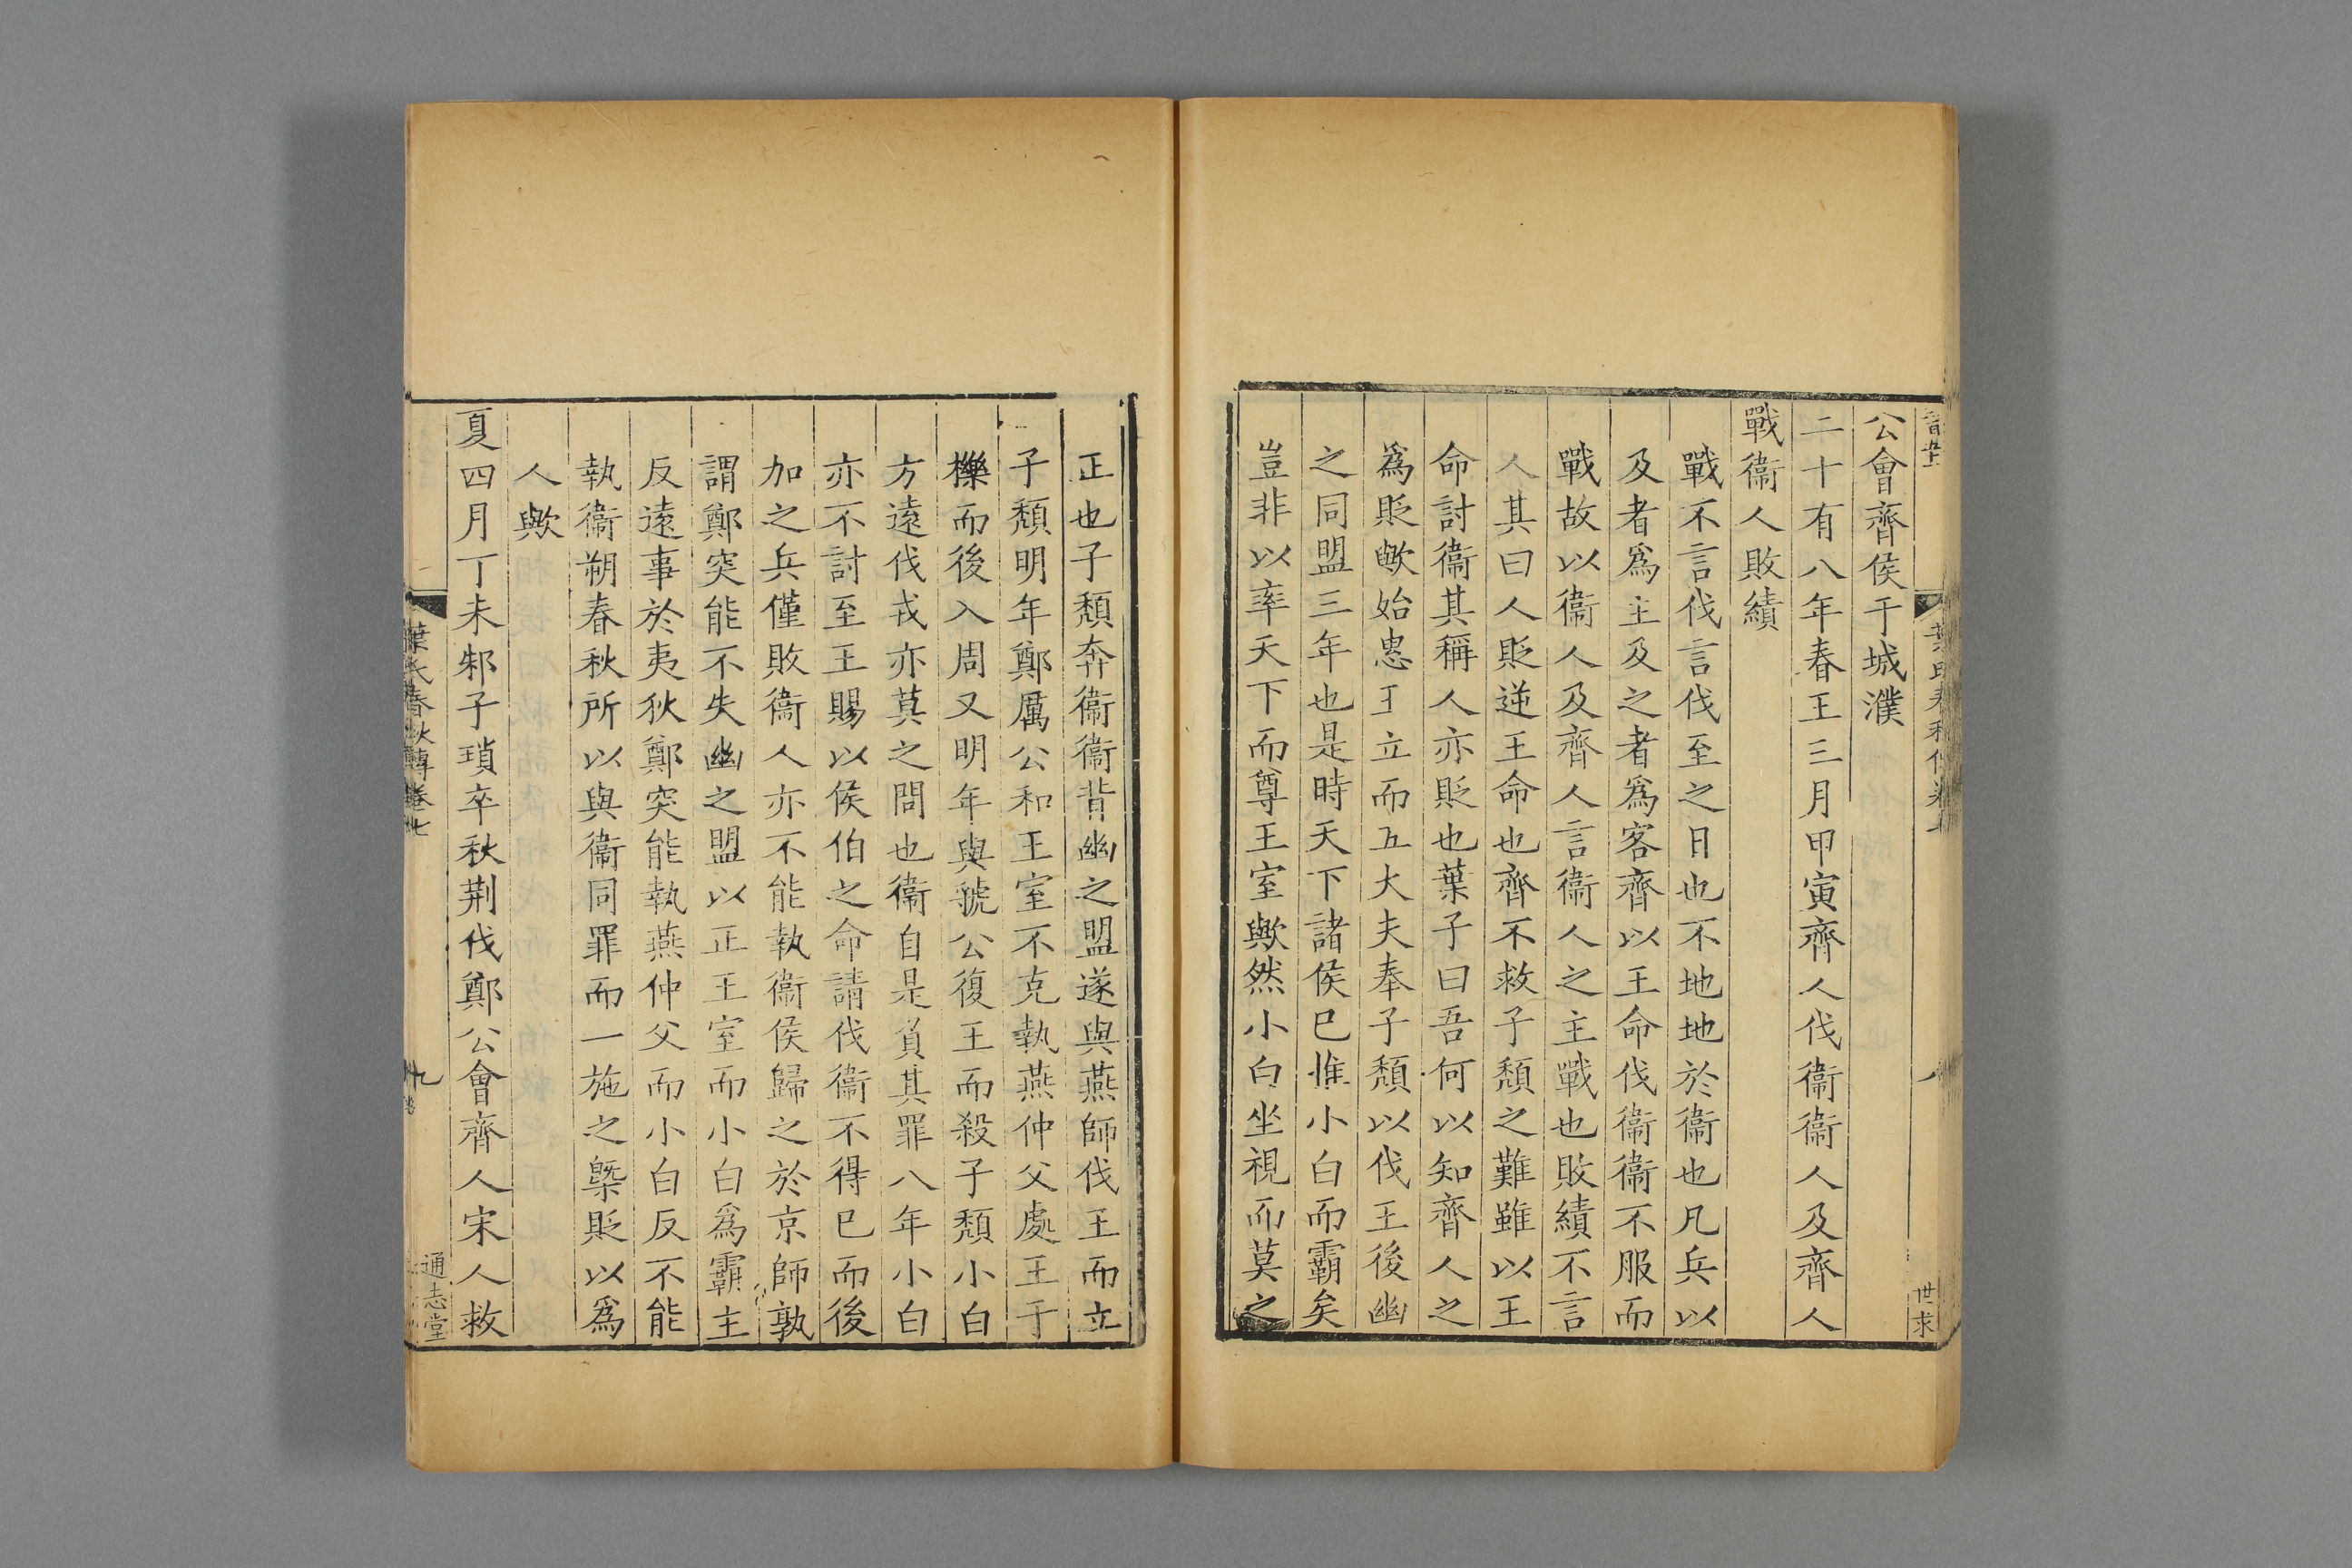 公會齊侯于城濮
二十有八年春王三月甲寅齊人伐衞衞人及齊人
戰衞人敗績
戰不言伐言伐至之日也不地地於衞也凡兵以
及者爲主及之者爲客齊以王命伐衞衞不服而
戰故以衞人及齊人言衞人之主戰也敗績不言
人其曰人貶逆王命也齊不救子頹之難雖以王
命討衞其稱人亦貶也葉子曰吾何以知齊人之
爲貶歟始惠王立而五大夫奉子頹以伐王後幽
之同盟三年也是時天下諸侯已惟小白而霸矣
豈非以率天下而尊王室歟然小白坐視而莫之
世求
正也子頹奔衞衞背幽之盟遂與燕師伐王而立
子頹明年鄭厲公和王室不克執燕仲父處王于
櫟而後入周又明年與虢公復王而殺子頹小白
方遠伐戎亦莫之問也衞自是負其罪八年小白
亦不討至王賜以侯伯之命請伐衞不得已而後
加之兵僅敗衞人亦不能執衞侯歸之於京師孰
謂鄭突能不失幽之盟以正王室而小白爲霸主
反遠事於夷狄鄭突能執燕仲父而小白反不能
執衞朔春秋所以與衞同罪而一施之槩貶以爲
人歟
夏四月丁未邾子瑣卒秋荆伐鄭公會齊人宋人救
葉氏春秋傳卷七
九
通志堂